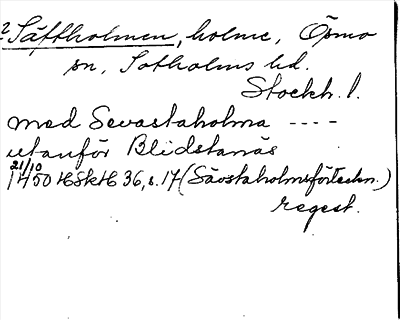 ? Säftholmen, holme, Ösmo
sn, Sotholms hd.
Stockh. l.
med Sevastaholma ----
utanför Blidstanäs
21/10
1450 HSkH 36, s. 17 (Sävstaholmsförteckn.)
regest.